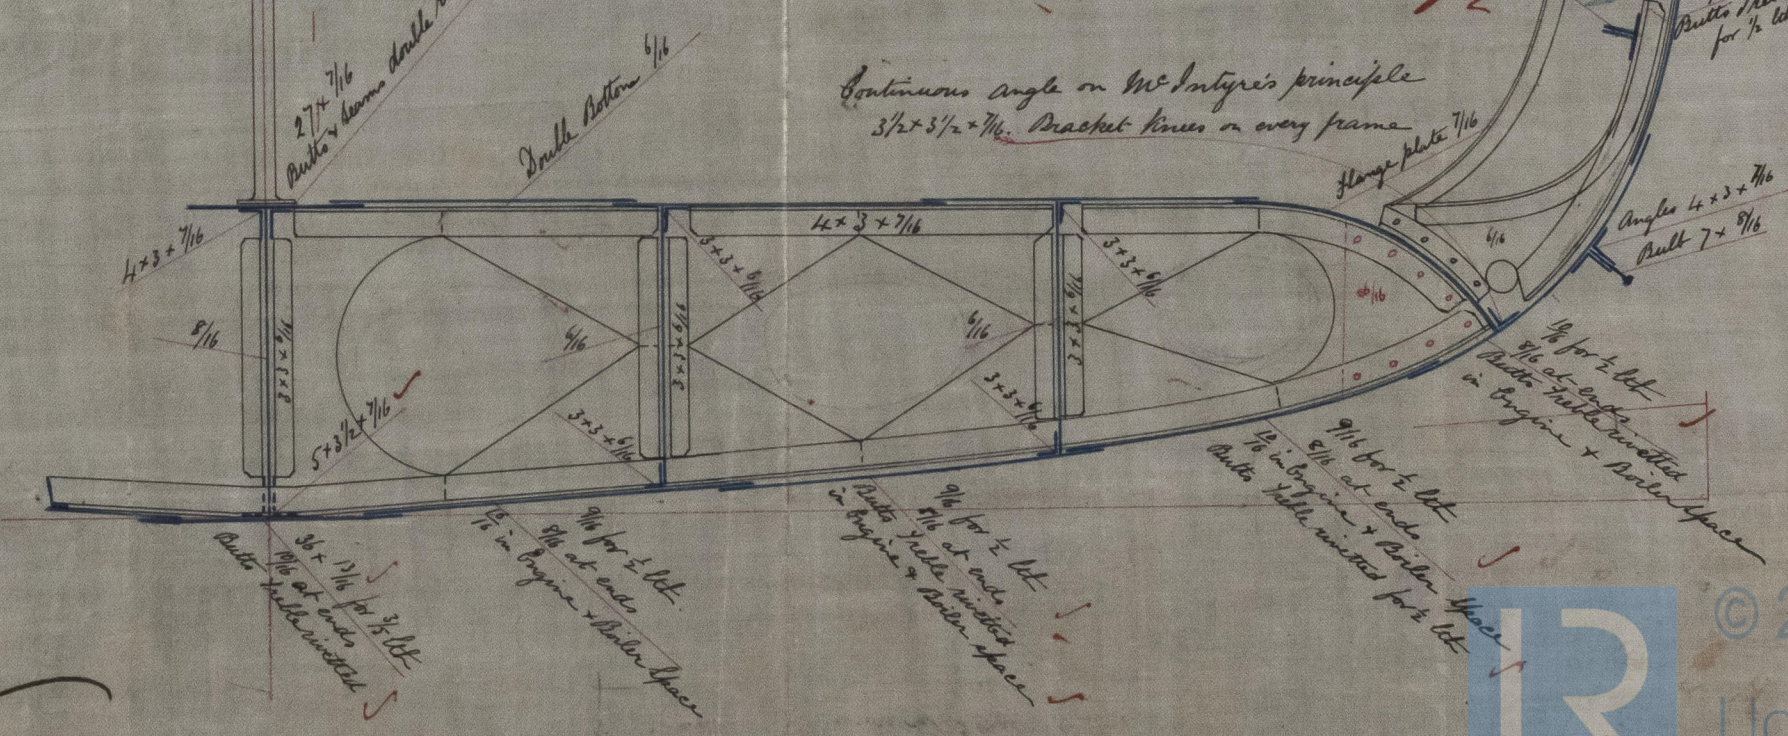 27 x 7/16
Butts & beams double
Double Bottom 6/16
Continuous angle on McIntyre's principle
3 1/2 x 3 1/2 x 7/16. Bracket Knees on every frame
flange plate 7/16
for 1/2 lt
Angles 4 x 3 x 7/16
Bulb 7 x 8/16
4 x 3 x 7/16
4 x 3 x 7/16
3 x 3 x 6/16
3 x 3 x 6/16
6/16
6/16
8/16
3 x 3 x 6/16
6/16
3 x 3 x 6/16
6/16
3 x 3 x 6/16
5 x 3 1/2 x 7/16
3 x 3 x 6/16
3 x 3 x 6/16
36 x 13/16 for 3/5 lt
10/16 at ends
Butts treble rivetted
9/16 for 1/2 lt.
8/16 at ends
10/16 in Engine & Boiler Space
9/16 for 1/2 lt
8/16 at ends
Butts treble rivetted
in Engine & Boiler Space
9/16 for 1/2 lt
8/16 at ends
10/16 in Engine & Boiler Space
Butts treble rivetted for 1/2 lt
10/16 for 1/2 lt
8/16 at ends
Butts treble rivetted
in Engine & Boiler Space
LR
©